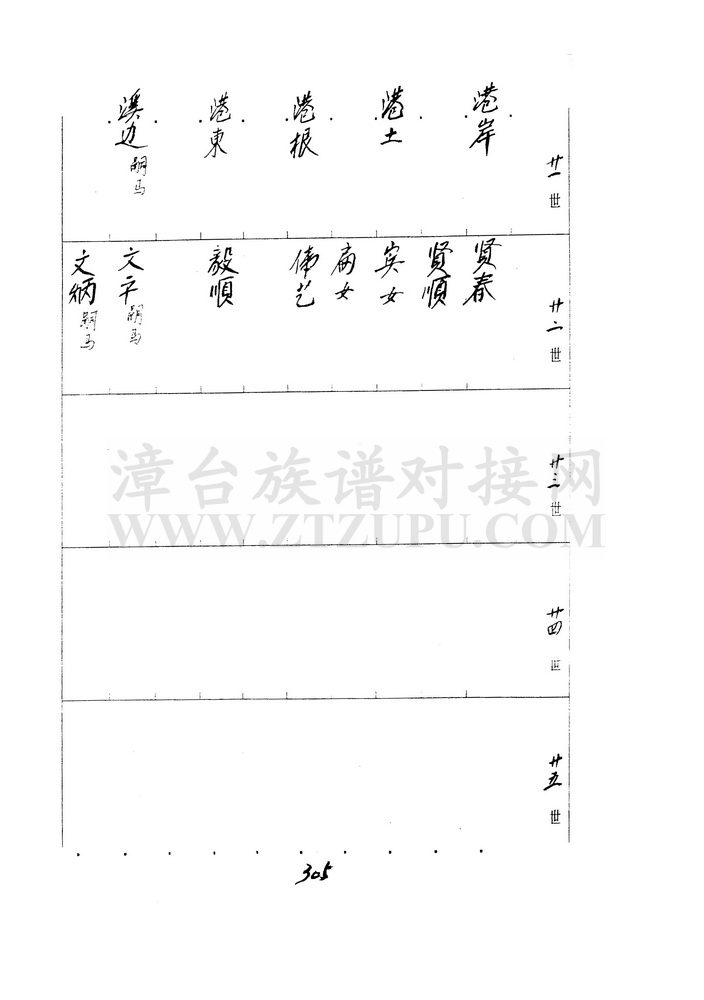 廿一世
港岸
港土
港根
港東
溪边 嗣马
廿二世
贤春
贤順
宾女
扁女
伟艺
毅順
文平 嗣马
文炳 嗣马
廿三世
廿四世
廿五世
漳台族谱对接网
WWW.ZTZUPU.COM
305